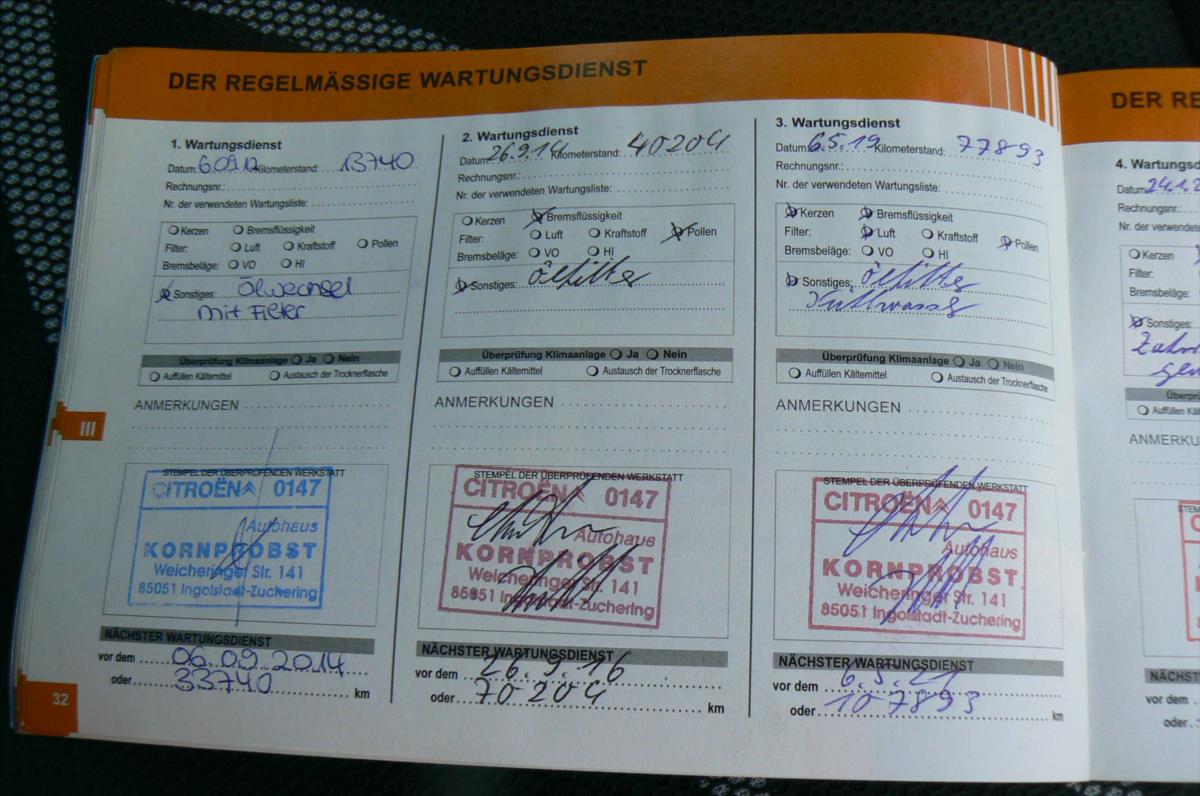 DER REGELMÄSSIGE WARTUNGSDIENST
1. Wartungsdienst
Datum: 6.09.12 Kilometerstand: 13740
Rechnungsnr.:
Nr. der verwendeten Wartungsliste:
Kerzen Bremsflüssigkeit
Filter: Luft Kraftstoff Pollen
Bremsbeläge: VO HI
Sonstiges: Ölwechsel
mit Filter
Überprüfung Klimaanlage Ja Nein
Auffüllen Kältemittel Austausch der Trocknerflasche
ANMERKUNGEN
STEMPEL DER ÜBERPRÜFENDEN WERKSTATT
CITROËN 0147
Autohaus
KORNPROBST
Weicheringer Str. 141
85051 Ingolstadt-Zuchering
NÄCHSTER WARTUNGSDIENST
vor dem 06.09.2014
oder 33740 km
2. Wartungsdienst
Datum: 26.9.14 Kilometerstand: 40204
Rechnungsnr.:
Nr. der verwendeten Wartungsliste:
Kerzen Bremsflüssigkeit
Filter: Luft Kraftstoff Pollen
Bremsbeläge: VO HI
Sonstiges: Ölfilter
Überprüfung Klimaanlage Ja Nein
Auffüllen Kältemittel Austausch der Trocknerflasche
ANMERKUNGEN
STEMPEL DER ÜBERPRÜFENDEN WERKSTATT
CITROËN 0147
Autohaus
KORNPROBST
Weicheringer Str. 141
85051 Ingolstadt-Zuchering
NÄCHSTER WARTUNGSDIENST
vor dem 26.9.16
oder 70204 km
3. Wartungsdienst
Datum: 6.5.19 Kilometerstand: 77893
Rechnungsnr.:
Nr. der verwendeten Wartungsliste:
Kerzen Bremsflüssigkeit
Filter: Luft Kraftstoff Pollen
Bremsbeläge: VO HI
Sonstiges: Ölfilter
Überprüfung Klimaanlage Ja Nein
Auffüllen Kältemittel Austausch der Trocknerflasche
ANMERKUNGEN
STEMPEL DER ÜBERPRÜFENDEN WERKSTATT
CITROËN 0147
Autohaus
KORNPROBST
Weicheringer Str. 141
85051 Ingolstadt-Zuchering
NÄCHSTER WARTUNGSDIENST
vor dem 6.5.21
oder 107893 km
III
32
DER RE
4. Wartungsd
Datum: 24.1.2
Kilo
Rechnungsnr.:
Nr. der verwende
Kerzen
Filter:
Bremsbeläge:
Sonstiges:
Überpr
Auffüllen Käl
ANMERKU
STEM
NÄCHST
vor dem
oder